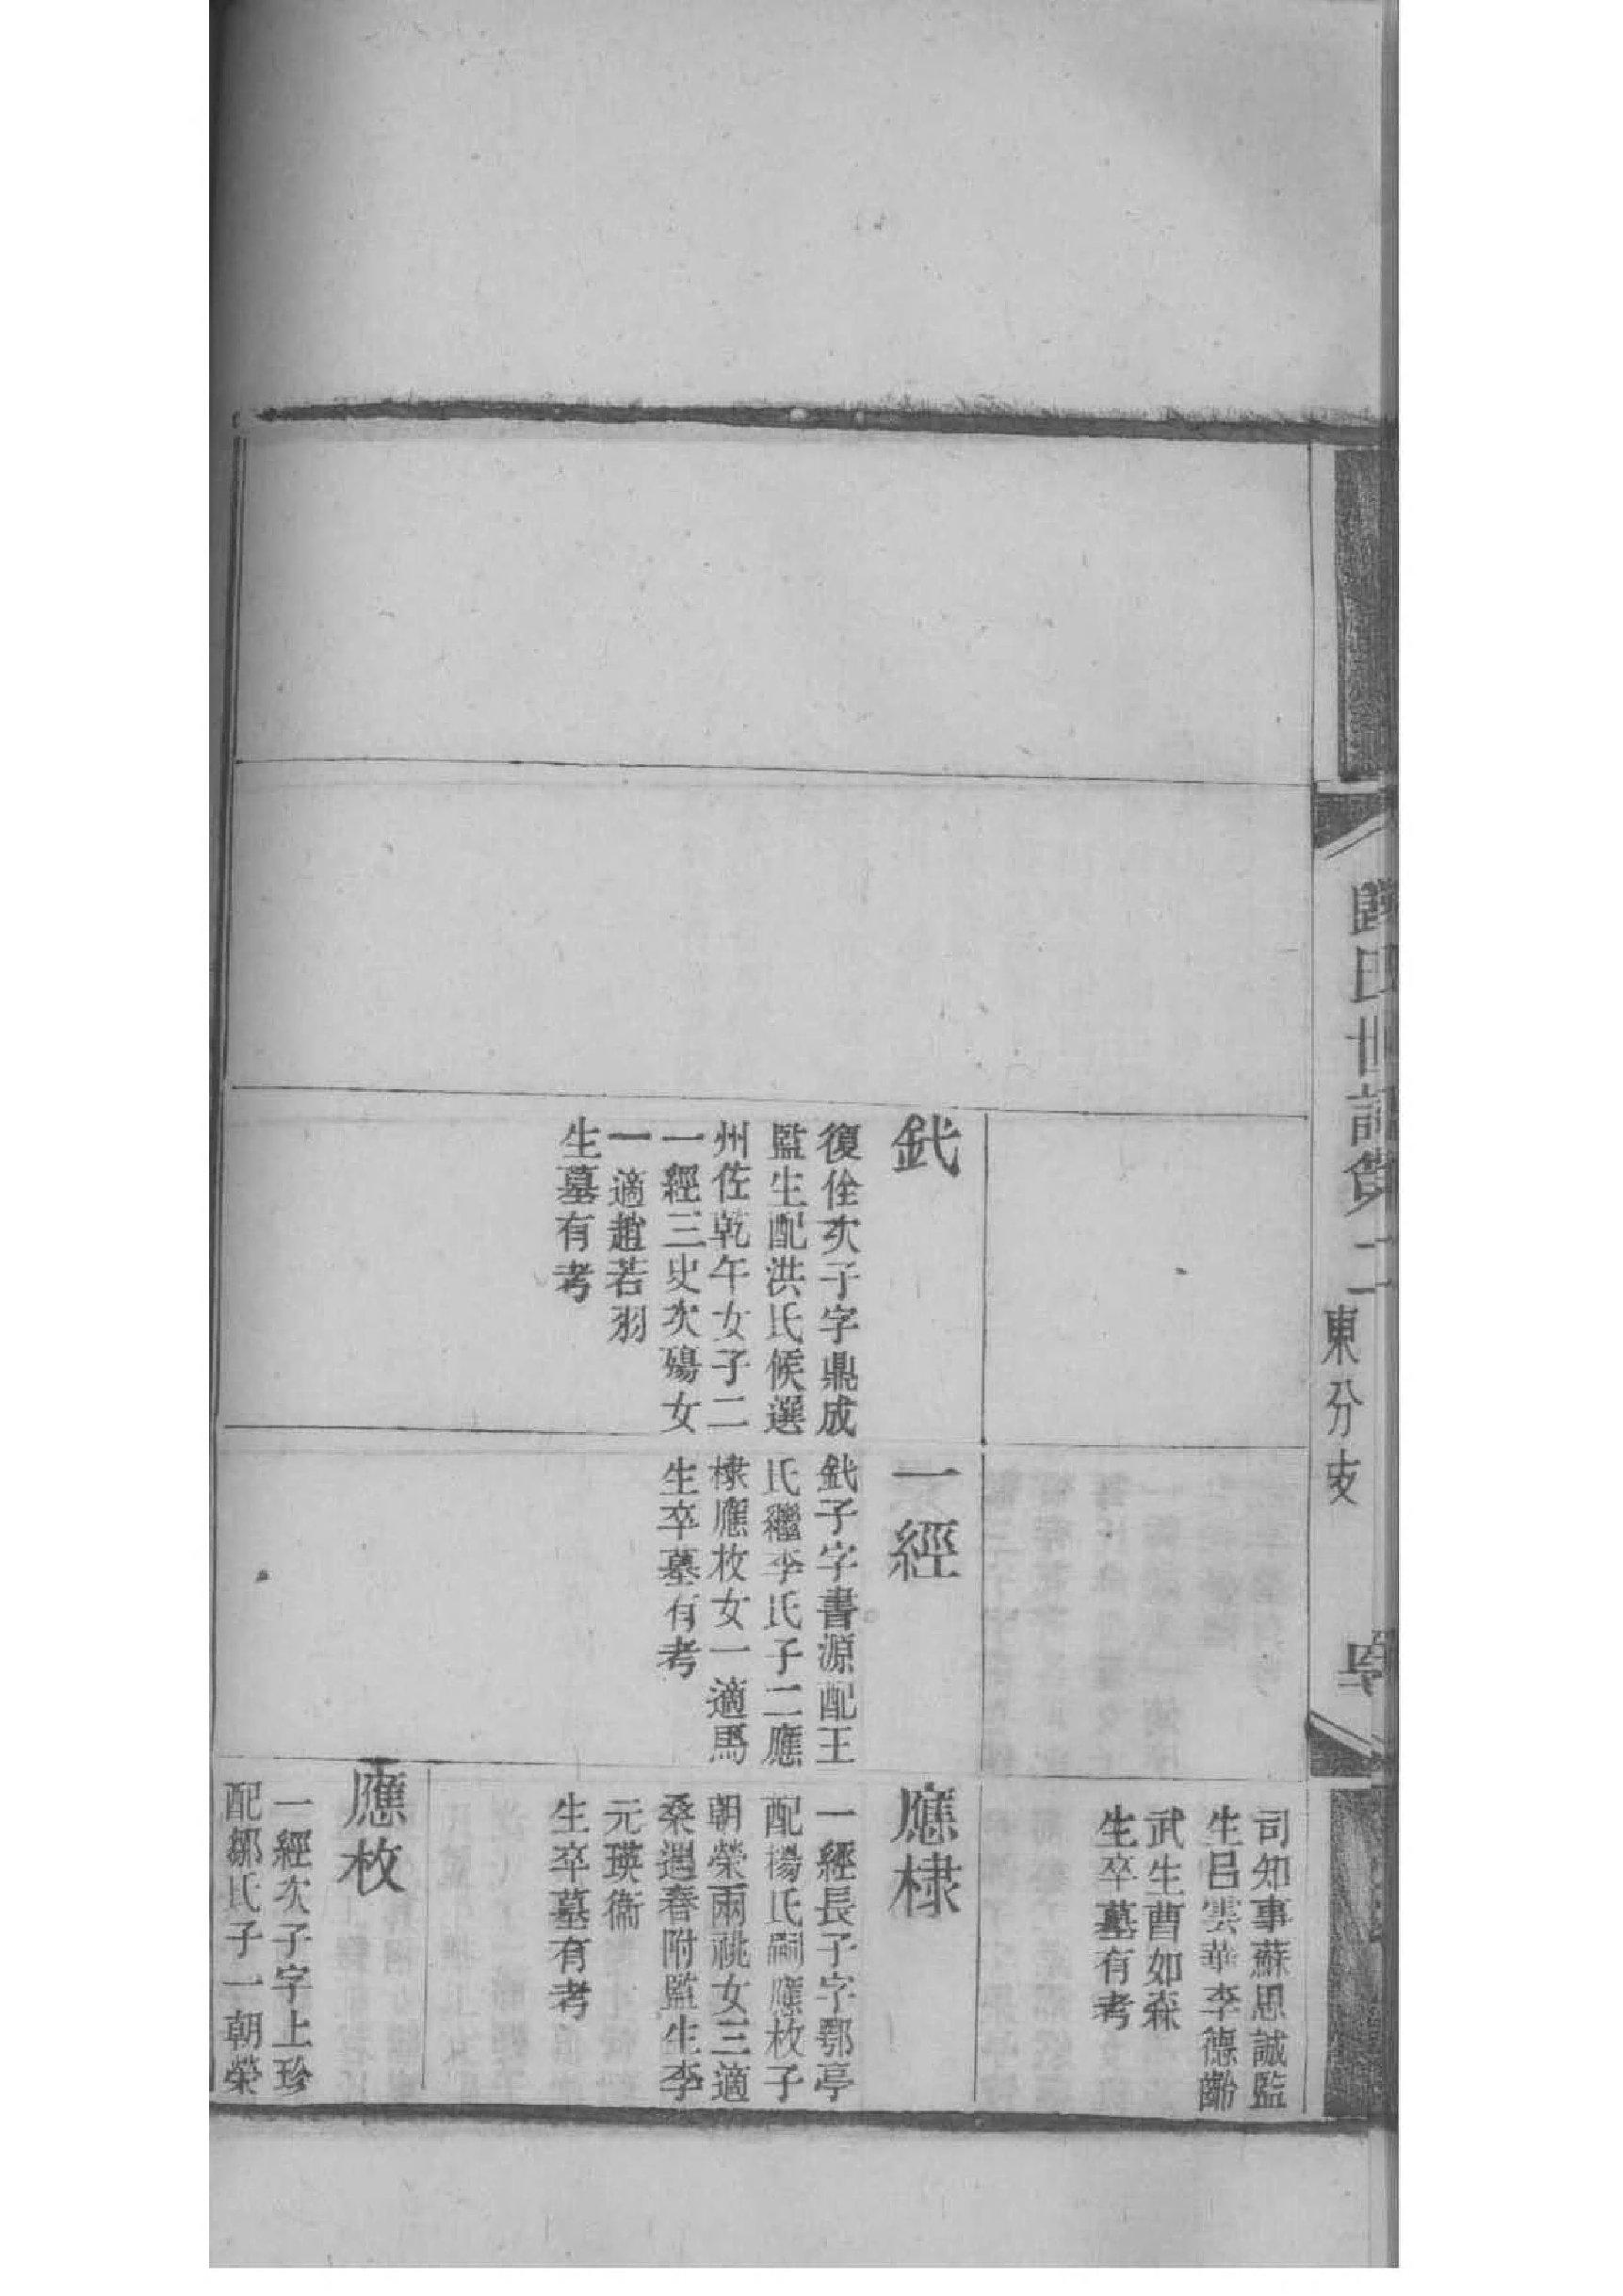 氏世記第二
東分支
司知事蘇思誠監
生呂雲華李德齡
武生曹如森
生卒墓有考
釴
復佺次子字鼎成
監生配洪氏候選
州佐乾午女子二
一經三史次殤女
一適趙若羽
生墓有考
一經
釴子字書源配王
氏繼李氏子二應
棣應枚女一適馬
生卒墓有考
應棣
一經長子字鄂亭
配楊氏嗣應枚子
朝榮兩祧女三適
桑遇春附監生李
元瑛衞
生卒墓有考
應枚
一經次子字上珍
配鄒氏子一朝榮